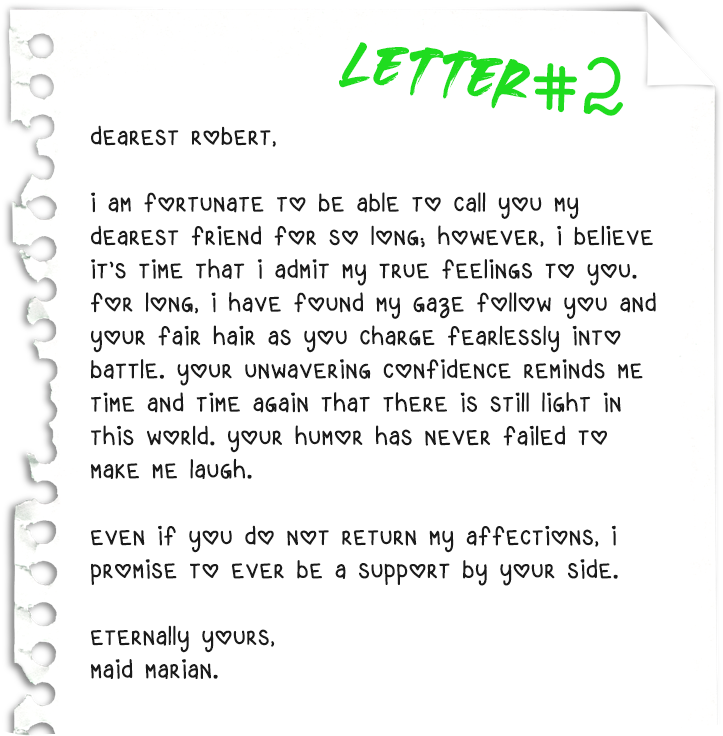 LETTER #2
dEAREST RObERT,
i AM fORTUNaTE TO bE AblE TO Call yOU My
dEAREST fRiENd fOR SO lONG; hOWEVER, i bEliEVE
iT'S TiME ThAT i AdMiT My TRUE fEEliNGS TO yOU.
fOR lONG, i hAVE fOUNd My GAZE fOllOW yOU ANd
yOUR fAiR hAiR AS yOU ChARGE fEARlESSly iNTO
bATTlE. yOUR UNWAVERiNG CONfidENCE REMiNdS ME
TiME ANd TiME AGAiN ThAT ThERE iS STill liGhT iN
ThiS WORld. yOUR hUMOR hAS NEVER fAilEd TO
MAKE ME lAUGh.
EVEN if yOU dO NOT RETURN My AffECTiONS, i
PROMiSE TO EVER bE A SUPPORT by yOUR SidE.
ETERNAlly yOURS,
MAid MARiAN.